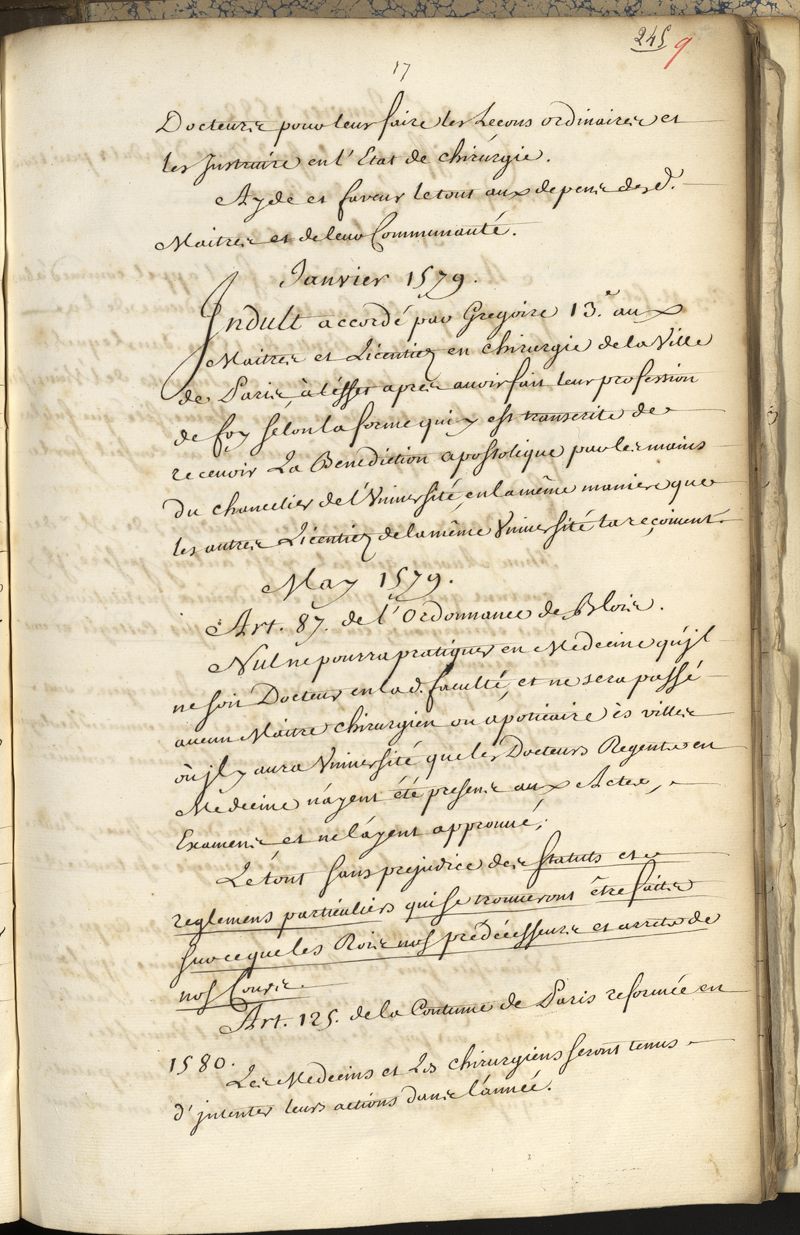 245 9
17
Docteurs pour leur faire les Lecons ordinaires et
les Instruire en l'Etat de chirurgie.
Ayde et faveur le tout aux depens des d.
Maitres et de leur Communauté.
Janvier 1579.
Indult accordé par Gregoire 13.e aux
Maitres et Licentiez en chirurgie de la Ville
de Paris, à l'effet apres avoir fait leur profession
de foy selon la forme qui y est transcrite de
recevoir La Benediction apostolique par les mains
Du chancelier de l'Université, en la même maniere que
les autres Licentiez de la même Université la reçoivent.
May 1579.
Art. 87. de l'Ordonnance de Blois.
Nul ne pourra pratiquer en Medecine qu'jl
ne soit Docteur en lad. faculté, et ne sera passé
aucun Maitre chirurgien ou apoticaire ès villes
où jl y aura Université que les Docteurs Regents en
Medecine n'ayent été presens aux Actes,
Examens et ne l'ayent approuvé;
Le tout sans prejudice des statuts et
reglemens particuliers qui se trouveront être faits
sur ce que les Rois nos prédécesseurs et arrets de
nos Cours.
Art. 125. de la Coutume de Paris reformée en
1580.
Les Medecins et Les chirurgiens seront tenus
d'jntenter leurs actions dans l'année.